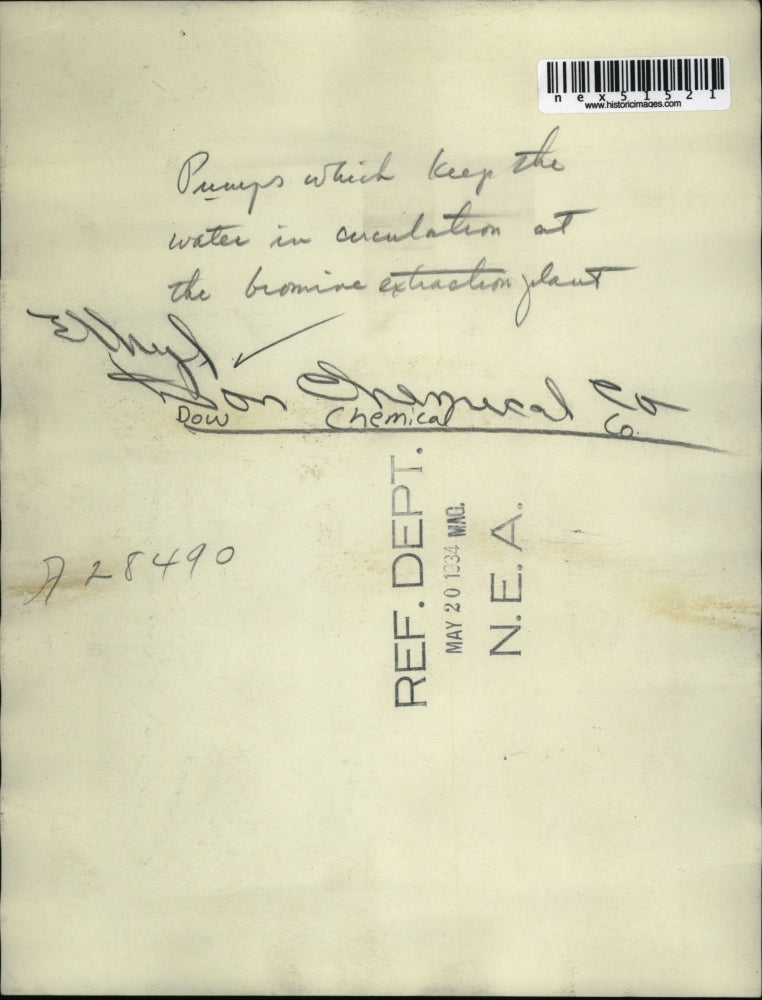 nex51521
www.historicimages.com
Pumps which keep the
water in circulation at
the bromine extraction plant
Ethyl
Dow Chemical Co
Dow Chemical Co.
A 28490
REF. DEPT.
MAY 20 1934 MAG.
N. E. A.